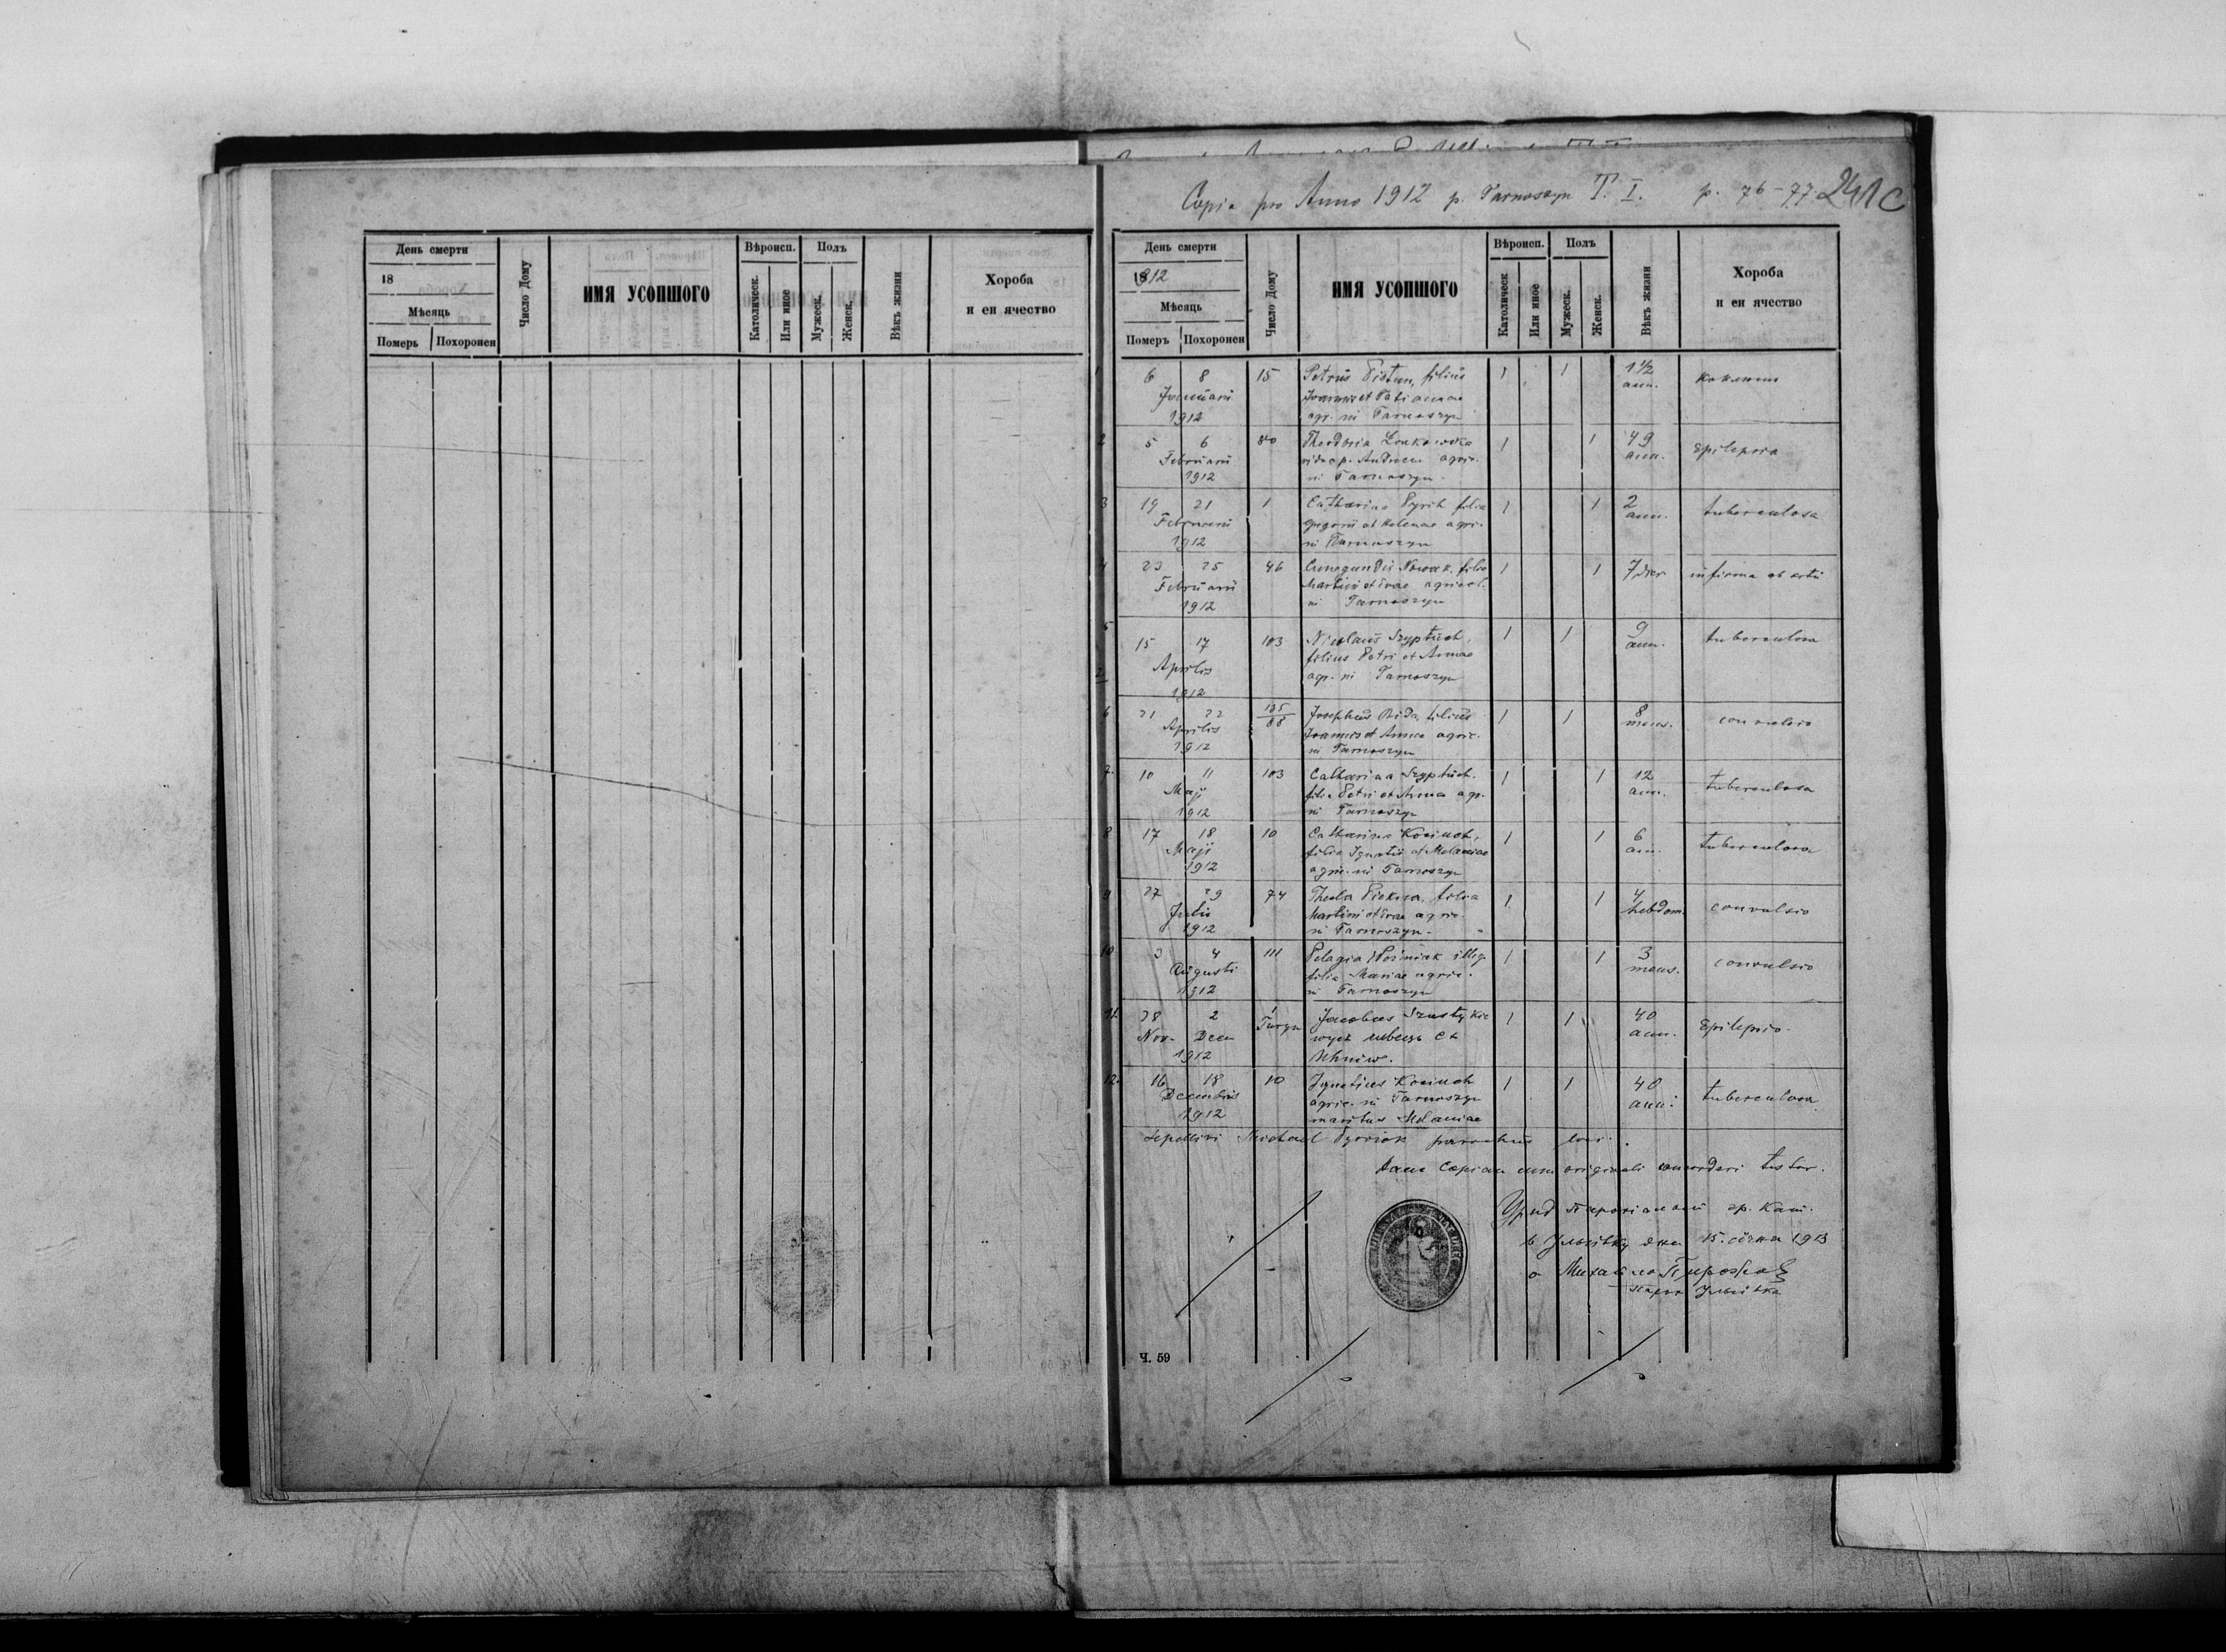 Copia pro Anno 1912 p. Tarnoszyn T. I. p. 76-77 241c
День смерти
18
Мѣсяць
Померъ Похоронен
Число Дому
ИМЯ УСОПШОГО
Вѣроисп.
Католическ.
Или иное
Полъ
Мужеск.
Женск.
Вѣкъ жизни
Хороба
и еи ячество
День смерти
1912
Мѣсяць
Померъ Похоронен
Число Дому
ИМЯ УСОПШОГО
Вѣроисп.
Католическ
Или иное
Полъ
Мужеск.
Женск.
Вѣкъ жизни
Хороба
и еи ячество
1 6 8 15 Petrus filius 1 1 1 1/2
Januarii Joannis et Tatianae ann. коклюш
1912 agr. in Tarnoszyn
2 5 6 80 Theodosia 1 1 49
Februarii vidua p. Andreae agric. ann. Epilepsia
1912 in Tarnoszyn
3 19 21 1 Catharina Pyrih filia 1 1 2
Februarii Gregorii et Helenae agric. ann. tuberculosa
1912 in Tarnoszyn
4 23 25 46 Cunegundis Nowak, filia 1 1 7 dier infirma ab ortu
Februarii Martini et Evae agricol.
1912 in Tarnoszyn
5 15 17 103 Nicolaus Szyptuch, 1 1 9
Aprilis filius Petri et Annae ann. tuberculosa
1912 agr. in Tarnoszyn
6 21 22 135/88 Josephus Bida, filius 1 1 8
Aprilis Joannis et Annae agric. mens. convulsio
1912 in Tarnoszyn
7. 10 11 103 Catharina Szyptuch. 1 1 12
Maji filia Petri et Annae agr. ann. tuberculosa
1912 in Tarnoszyn
8 17 18 10 Catharina Kociuch, 1 1 6
Maji filia Ignatii et Melaniae ann. tuberculosa
1912 agric. in Tarnoszyn
9 27 29 74 Thecla filia 1 1 4
Julii Martini et Evae agric. hebdom. convulsio
1912 in Tarnoszyn.
10 3 4 111 Pelagia Woźniak illeg. 1 1 3
Augusti filia Mariae agric. mens. convulsio
1912 in Tarnoszyn
11. 28 2 1 Jacobus 1 1 40
Nov. Decem ann. Epilepsio.
1912 Uhniw.
12. 16 18 10 Ignatius Kociuch 1 1 40
Decembris agric. in Tarnoszyn ann. tuberculosa
1912 maritus Melaniae
Sepelivi Michael Pyrożok parochus loci.
Hanc Copiam cum originali concordari testor.
Уряд парохіяльний гр. кат.
в Ульгівку дня 15. січня 1913
о Михайло Пирожок
парох Ульгівка
Ч. 59